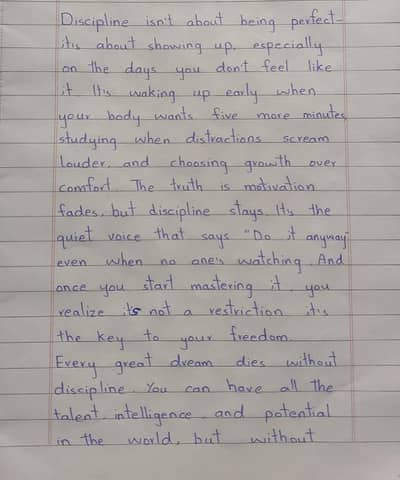 Discipline isn't about being perfect-
it's about showing up, especially
on the days you don't feel like
it. It's waking up early when
your body wants five more minutes,
studying when distractions scream
louder, and choosing growth over
comfort. The truth is motivation
fades, but discipline stays. It's the
quiet voice that says "Do it anyway"
even when no one's watching. And
once you start mastering it, you
realize it's not a restriction it's
the key to your freedom.
Every great dream dies without
discipline. You can have all the
talent, intelligence, and potential
in the world, but without